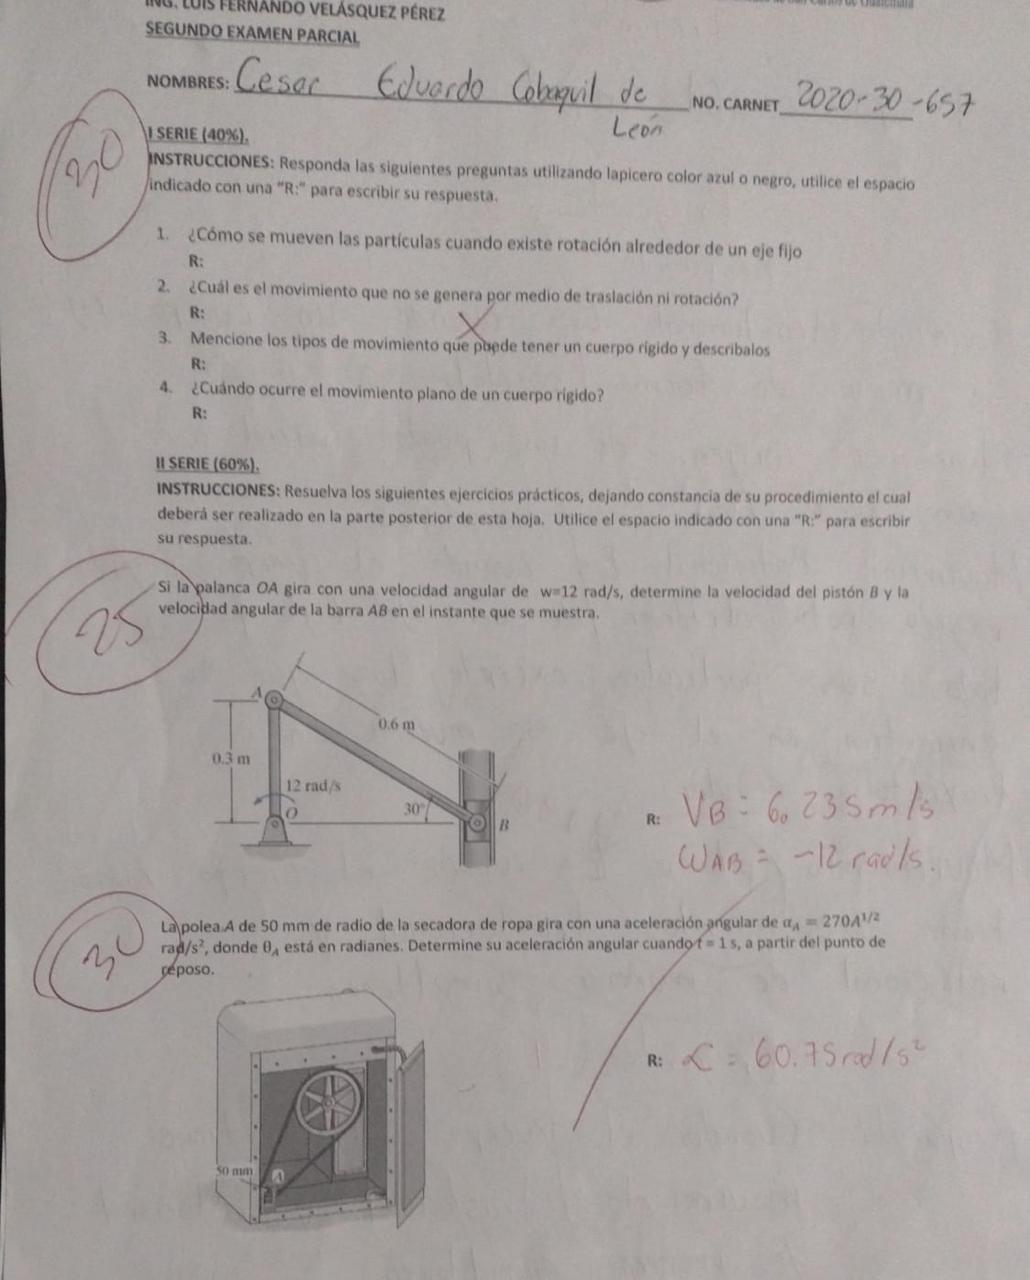 ING. LUIS FERNANDO VELÁSQUEZ PÉREZ
SEGUNDO EXAMEN PARCIAL
NOMBRES: Cesar Eduardo Cobaquil de León NO. CARNET 2020-30-657
30
I SERIE (40%).
INSTRUCCIONES: Responda las siguientes preguntas utilizando lapicero color azul o negro, utilice el espacio
indicado con una "R:" para escribir su respuesta.
1. ¿Cómo se mueven las partículas cuando existe rotación alrededor de un eje fijo
R:
2. ¿Cuál es el movimiento que no se genera por medio de traslación ni rotación?
R:
3. Mencione los tipos de movimiento que puede tener un cuerpo rígido y describalos
R:
4. ¿Cuándo ocurre el movimiento plano de un cuerpo rígido?
R:
II SERIE (60%).
INSTRUCCIONES: Resuelva los siguientes ejercicios prácticos, dejando constancia de su procedimiento el cual
deberá ser realizado en la parte posterior de esta hoja. Utilice el espacio indicado con una "R:" para escribir
su respuesta.
25
Si la palanca OA gira con una velocidad angular de w=12 rad/s, determine la velocidad del pistón B y la
velocidad angular de la barra AB en el instante que se muestra.
A
0.6 m
0.3 m
12 rad/s
O
30°
B
R: VB = 6.235m/s
ωAB = -12 rad/s.
30
La polea A de 50 mm de radio de la secadora de ropa gira con una aceleración angular de αA = 270A^1/2
rad/s², donde θA está en radianes. Determine su aceleración angular cuando t = 1 s, a partir del punto de
reposo.
R: ∝ = 60.75rad/s²
50 mm
A